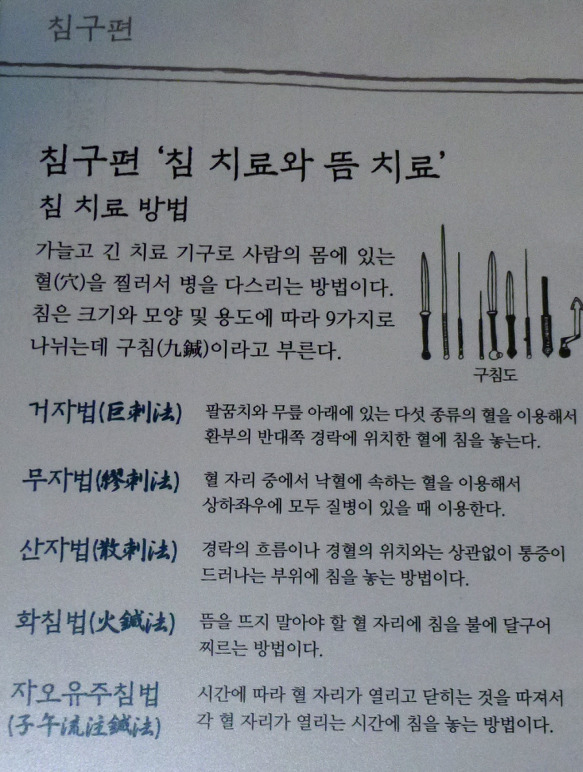 침구편
침구편 ‘침 치료와 뜸 치료’
침 치료 방법
가늘고 긴 치료 기구로 사람의 몸에 있는
혈(穴)을 찔러서 병을 다스리는 방법이다.
침은 크기와 모양 및 용도에 따라 9가지로
나뉘는데 구침(九鍼)이라고 부른다.
구침도
거자법(巨刺法)
팔꿈치와 무릎 아래에 있는 다섯 종류의 혈을 이용해서
환부의 반대쪽 경락에 위치한 혈에 침을 놓는다.
무자법(繆刺法)
혈 자리 중에서 낙혈에 속하는 혈을 이용해서
상하좌우에 모두 질병이 있을 때 이용한다.
산자법(散刺法)
경락의 흐름이나 경혈의 위치와는 상관없이 통증이
드러나는 부위에 침을 놓는 방법이다.
화침법(火鍼法)
뜸을 뜨지 말아야 할 혈 자리에 침을 불에 달구어
찌르는 방법이다.
자오유주침법
(子午流注鍼法)
시간에 따라 혈 자리가 열리고 닫히는 것을 따져서
각 혈 자리가 열리는 시간에 침을 놓는 방법이다.